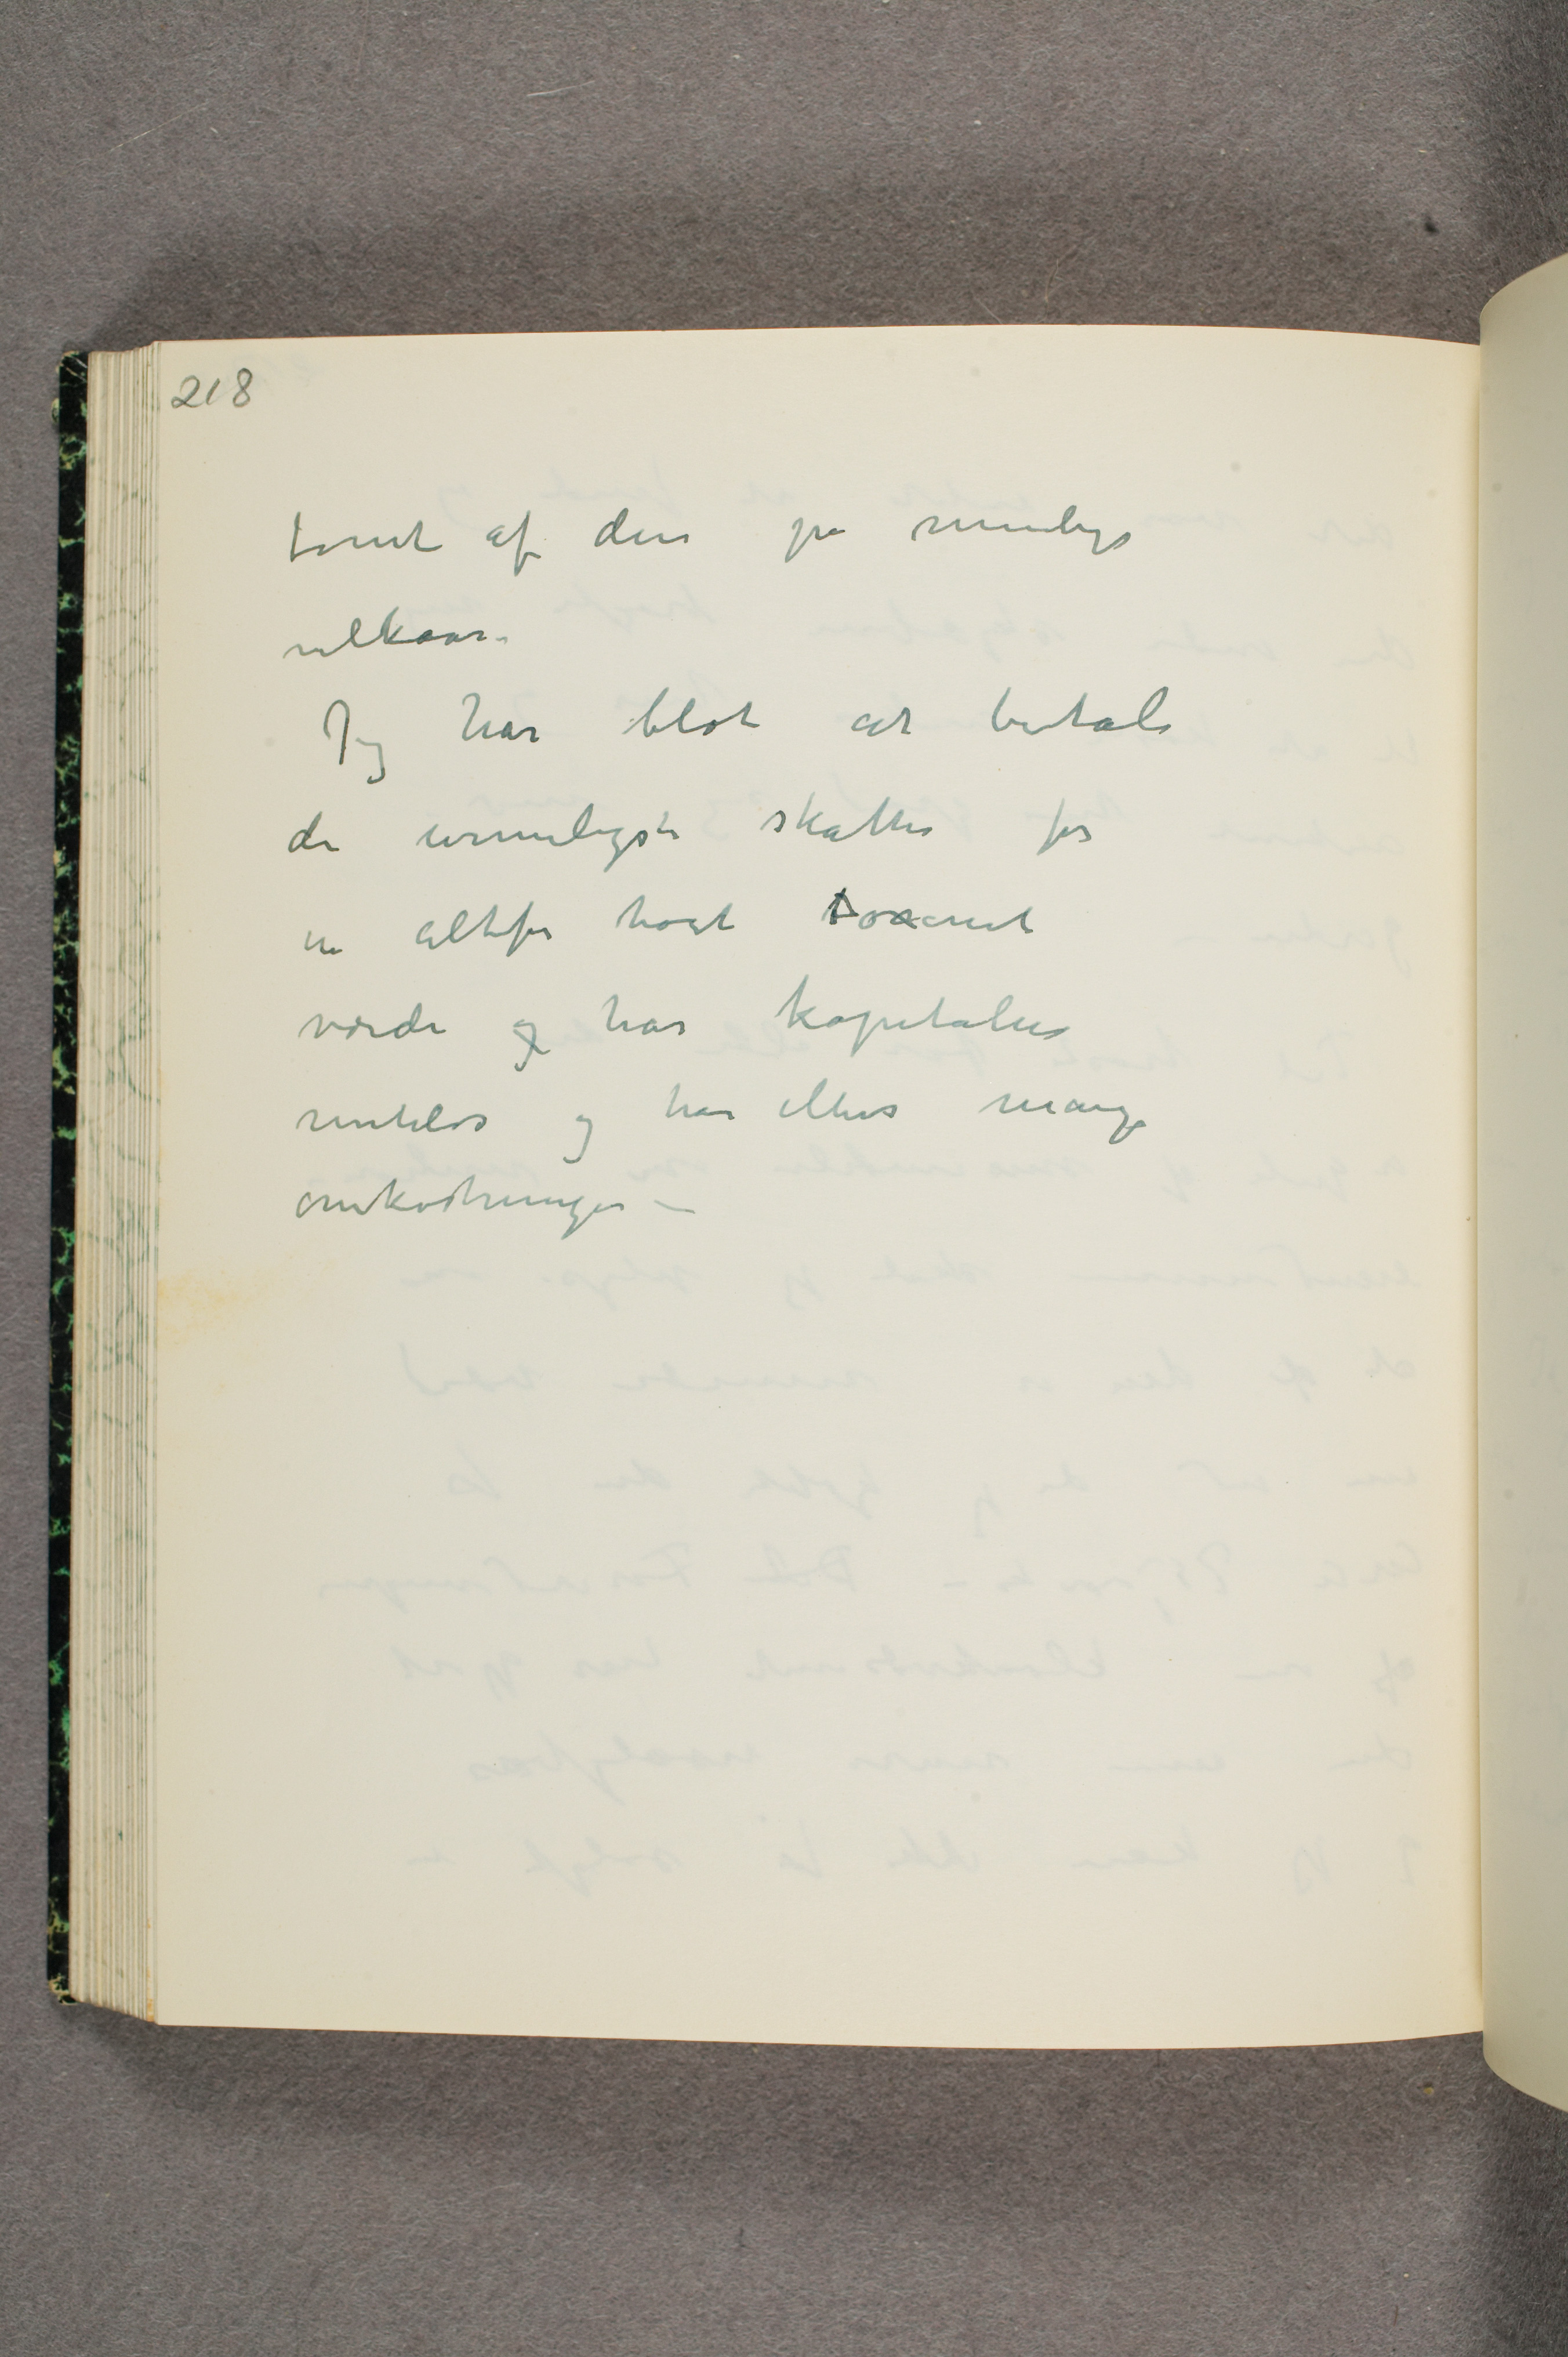 218
tomt af den på rimelige
vilkaar.
Jeg har blot at betale
de urimeligste skatter for
en altfor høat taxeret
værdi og har kapitalen
renteløs og har ellers mange
omkostninger –